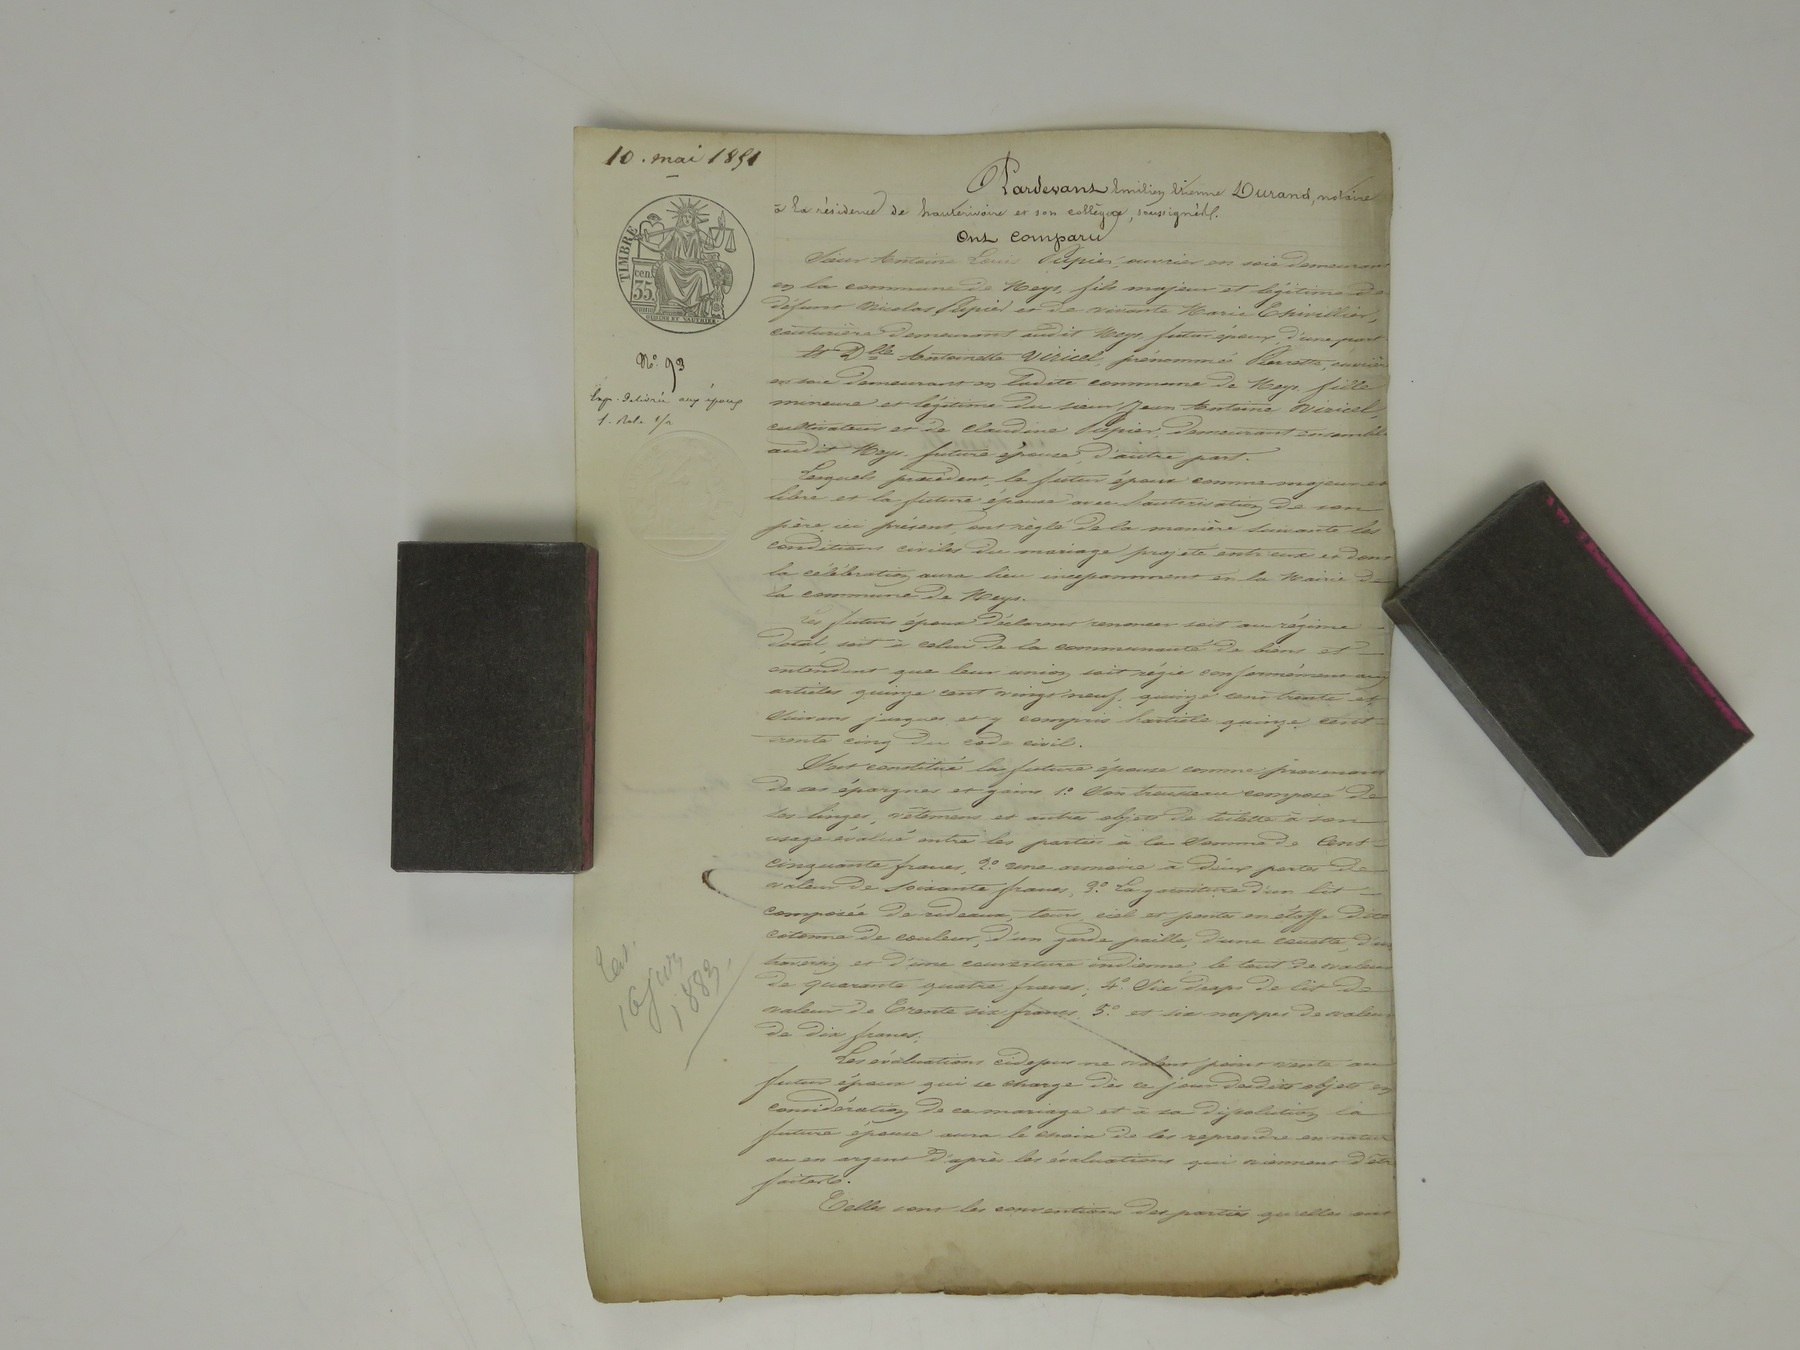 10. mai 1851
Pardevant Emilien Etienne Durand, notaire
à la résidence de hauterivoire et son collègue, soussignés.
Ont comparu
TIMBRE
cen
35
N° 93
Exp. Délivrée aux époux
1. Role 1/2
Sieur Antoine Louis Pupier, ouvrier en soie demeurant
en la commune de Meys, fils majeur et légitime de
défunt Nicolas Pupier et de vivante Marie
couturière demeurant audit Meys, futur époux, d'une part
Et Dlle Antoinette Viricel, prénommée Pierrette, ouvrière
en soie demeurant en ladite commune de Meys, fille
mineure et légitime du sieur Jean Antoine Viricel,
cultivateur et de Claudine Pupier, demeurant ensemble
audit Meys, future épouse, d'autre part.
Lesquels procèdent, le futur époux comme majeur et
libre et la future épouse avec l'autorisation de son
père, ici présent, ont règlé de la manière suivante les
conditions civiles du mariage projeté entr'eux et dont
la célébration aura lieu incessamment en la Mairie de
la commune de Meys.
Les futurs époux déclarent renoncer soit au régime
dotal, soit à celui de la communauté de biens et
entendent que leur union soit régie conformément aux
articles quinze cent vingt neuf, quinze cent trente et
suivans jusques et y compris l'article quinze cent
trente cinq du code civil.
S'est constitué la future épouse comme provenant
de ses épargnes et gains 1° Son trousseau composé de
les linges, vêtemens et autres objets de toilette à son
usage évalué entre les parties à la somme de Cent
cinquante francs, 2° une armoire à deux portes de
valeur de soixante francs, 3° La garniture d'un lit
composée de rideaux, tours, ciel et pentes en étoffe dite
cotonne de couleur, d'un garde paille, d'une couette, d'un
traversin et d'une couverture indienne, le tout de valeur
de quarante quatre francs; 4° Six draps de lit de
valeur de Trente six francs, 5° et six nappes de valeur
de dix francs.
16 juin
1883
Les évaluations cidessus ne valent point vente au
futur époux qui se charge dès ce jour desdits objets en
considération de ce mariage et à sa dissolution la
future épouse aura le choix de les reprendre en nature
ou en argent d'après les évaluations qui viennent d'être
faites.
Telles sont les conventions des parties qu'elles ont